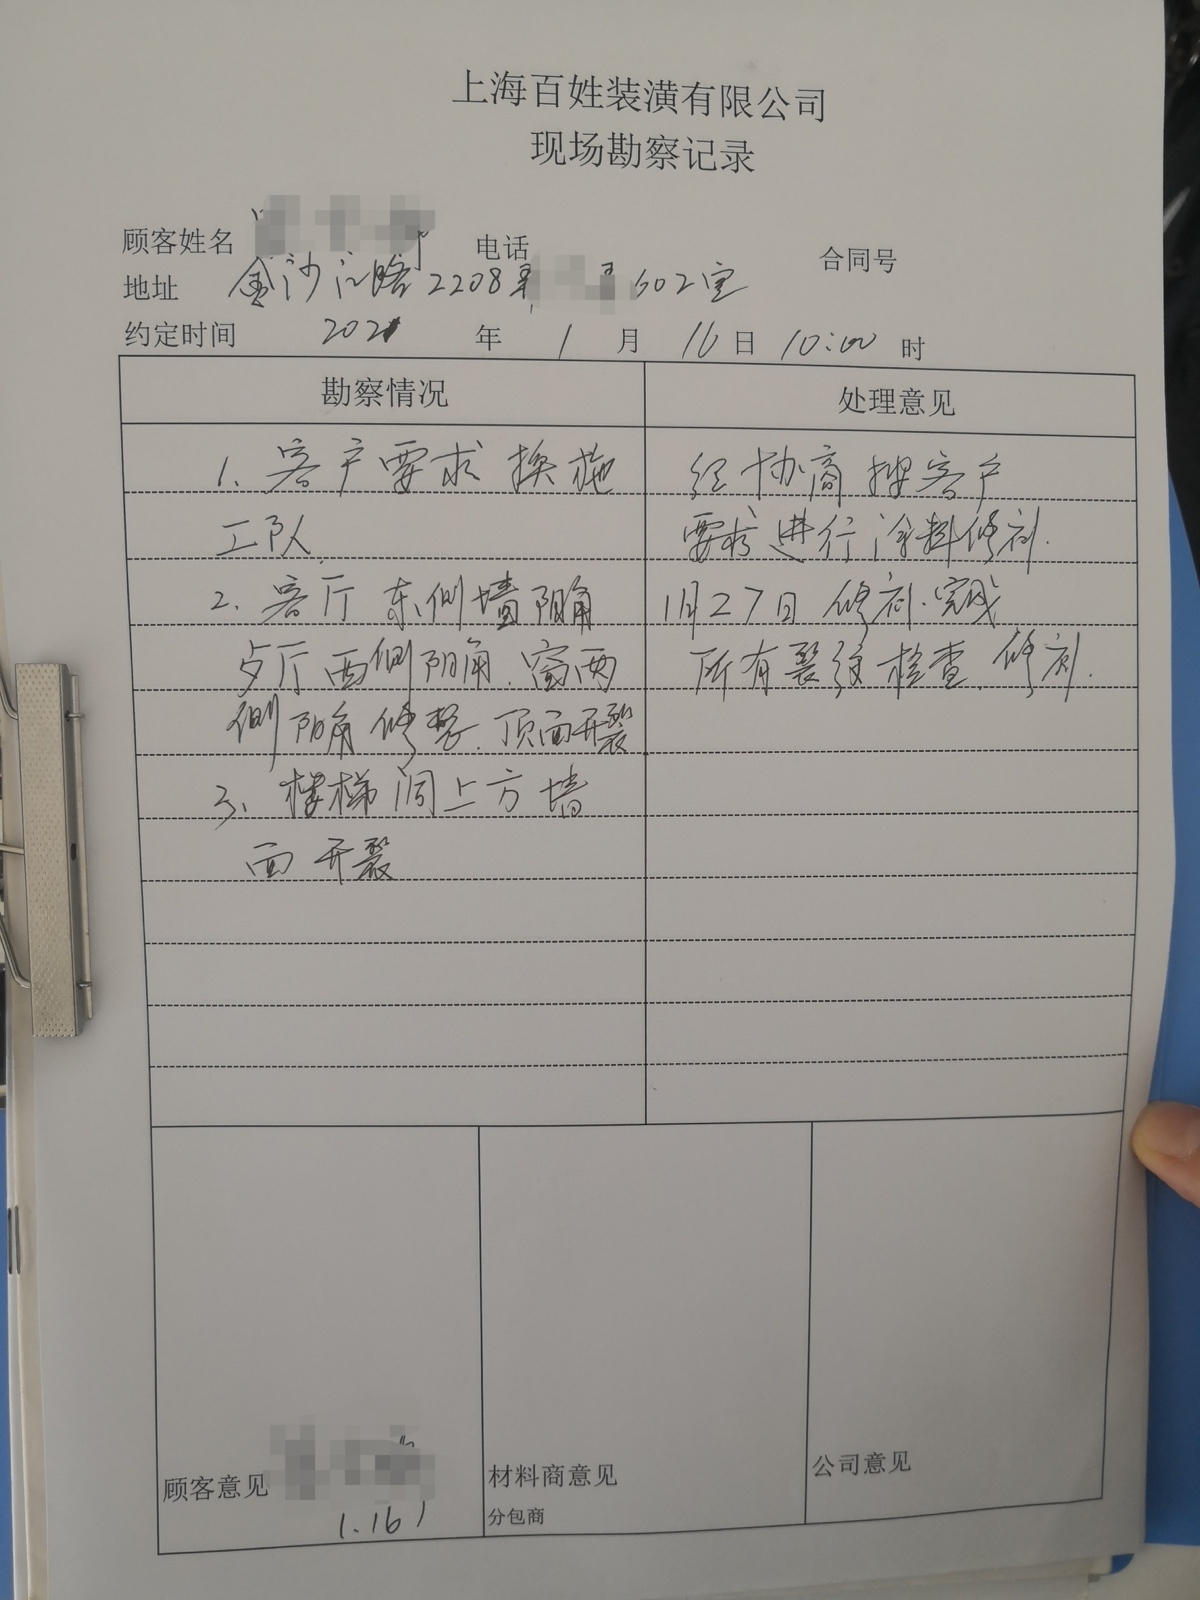 上海百姓装潢有限公司
现场勘察记录
顾客姓名 电话 合同号
地址 金沙江路2208弄 602室
约定时间 2021 年 1 月 16 日 10:00 时
勘察情况 处理意见
1、客户要求换施
工队
2、客厅东侧墙阴角
歺厅西侧阴角、窗两
侧阴角修整、顶面开裂
3、楼梯间上方墙
面开裂
经协商按客户
要求进行涂料修补.
1月27日修补完成
所有裂纹检查、修补.
顾客意见
1.16
材料商意见
分包商
公司意见